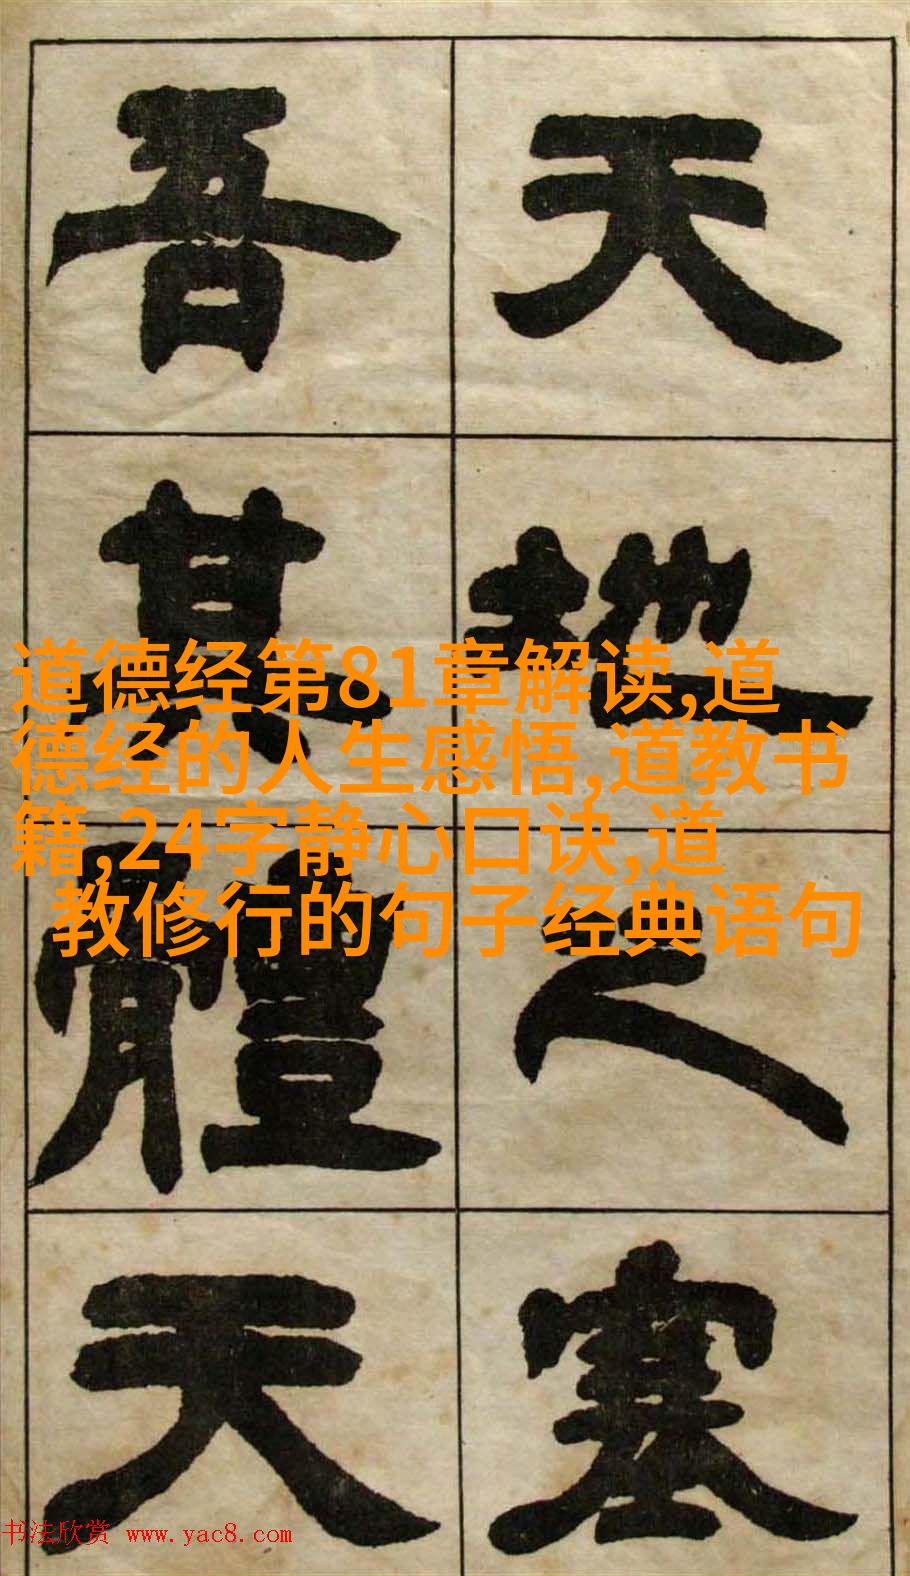 天地之塞
吾其體天
道德经第81章解读,道
德经的人生感悟,道教书
籍,24字静心口诀,道
教修行的句子经典语句
书法欣赏 www.yac8.com